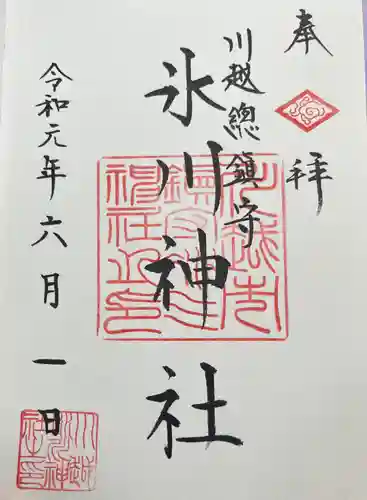 奉拝
川越總鎮守
氷川神社
令和元年六月一日